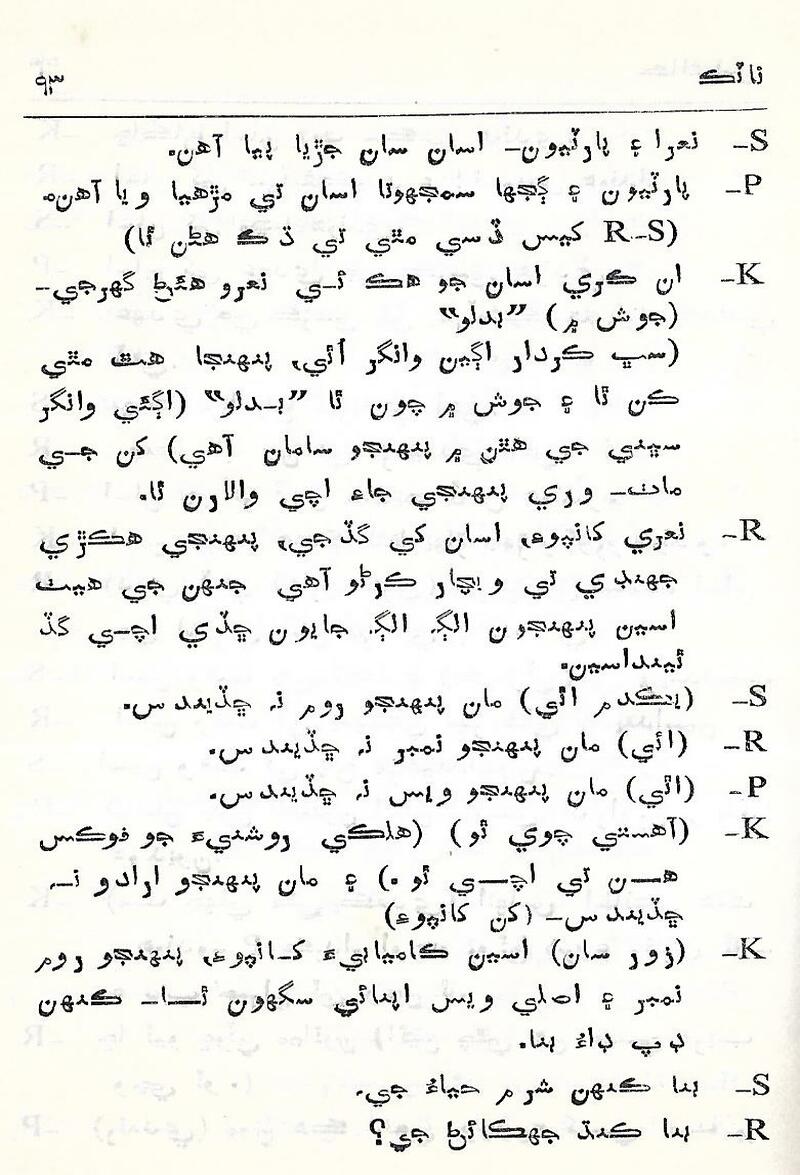 ناٽڪ ۹۳
S– نعرا ۽ پارٽيون– اسان سان جڙيا پيا آهن.
P– پارٽيون ۽ ڳجها سمجهوتا اسان تي مڙهيا ويا آهن.
(R–S کيس ڏسي مٿي تي ڌڪ هڻن ٿا)
K– ان ڪري اسان جو هڪ ئي نعرو هئڻ گهرجي–
(جوش ۾) ”بدلو“
(سڀ ڪردار اڳين وانگر اُٿي، پنهنجا هٿ مٿي
ڪن ٿا ۽ جوش ۾ چون ٿا ”بدلو“ (اڳئي وانگر
سڀني جي هٿن ۾ پنهنجو سامان آهي) کن جي
ماٺ– وري پنهنجي جاءِ اچي والارن ٿا.
R– نعري کانپوءِ، اسان کي گڏجي، پنهنجي هڪڙي
جهنڊي تي ويچار ڪرڻو آهي جنهن جي هيٺ
اسين پنهنجون الڳ الڳ جايون ڇڏي اچي گڏ
ٿينداسين.
S– (يڪدم اٿي) مان پنهنجو روم نہ ڇڏيندس.
R– (اٿي) مان پنهنجو نمبر نہ ڇڏيندس.
P– (اٿي) مان پنهنجو ويس نہ ڇڏيندس.
K– (آهستي چوي ٿو) (هلڪي روشنيءَ جو فوڪس
هن تي اچي ٿو.) ۽ مان پنهنجو ارادو نہ
ڇڏيندس– (کن کانپوءِ)
K– (زور سان) اسين ڪاميابيءَ کانپوءِ، پنهنجو روم
نمبر ۽ اصلي ويس اپنائي سگهون ٿا– ڪنهن
ڊپ ڊاءُ بنا.
S– بنا ڪنهن شرم حياءُ جي.
R– بنا ڪنڌ جهڪائڻ جي؟